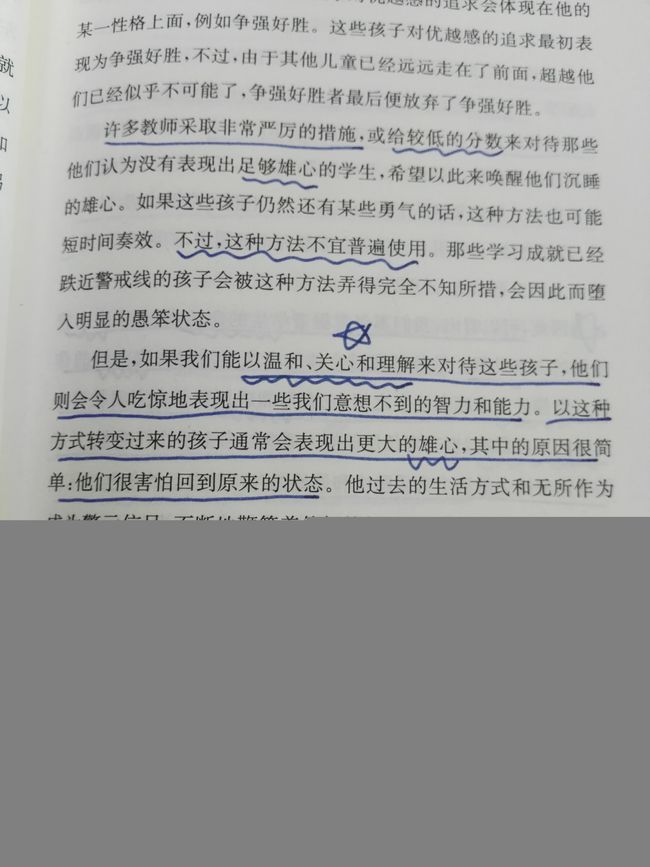 优越感的追求会体现在他的
某一性格上面，例如争强好胜。这些孩子对优越感的追求最初表
现为争强好胜，不过，由于其他儿童已经远远走在了前面，超越他
们已经似乎不可能了，争强好胜者最后便放弃了争强好胜。
许多教师采取非常严厉的措施，或给较低的分数来对待那些
他们认为没有表现出足够雄心的学生，希望以此来唤醒他们沉睡
的雄心。如果这些孩子仍然还有某些勇气的话，这种方法也可能
短时间奏效。不过，这种方法不宜普遍使用。那些学习成就已经
跌近警戒线的孩子会被这种方法弄得完全不知所措，会因此而堕
入明显的愚笨状态。
但是，如果我们能以温和、关心和理解来对待这些孩子，他们
则会令人吃惊地表现出一些我们意想不到的智力和能力。以这种
方式转变过来的孩子通常会表现出更大的雄心，其中的原因很简
单：他们很害怕回到原来的状态。他过去的生活方式和无所作为
就
以